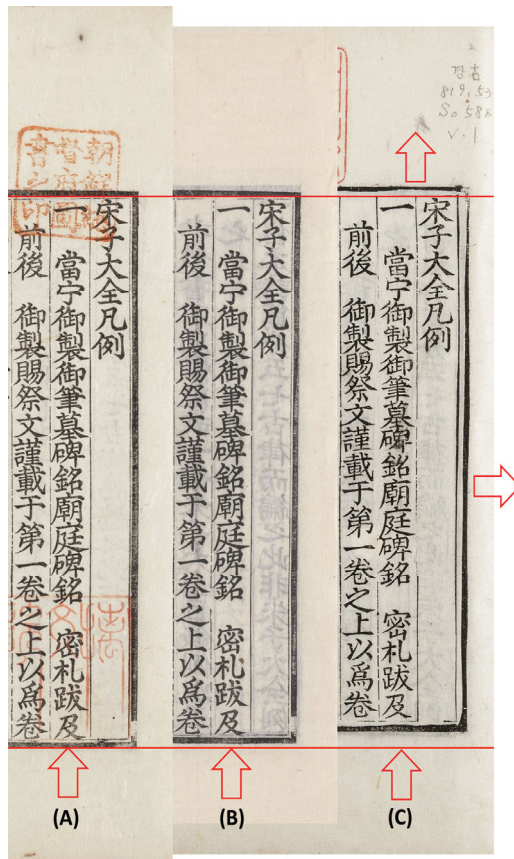 朝鮮總
督府圖
書之印
宋子大全凡例
一 當宁御製御筆墓碑銘廟庭碑銘 密札跋及
前後 御製賜祭文謹載于第一卷之上以爲卷
(A)
宋子大全凡例
一 當宁御製御筆墓碑銘廟庭碑銘 密札跋及
前後 御製賜祭文謹載于第一卷之上以爲卷
(B)
819.53
V.1
宋子大全凡例
一 當宁御製御筆墓碑銘廟庭碑銘 密札跋及
前後 御製賜祭文謹載于第一卷之上以爲卷
(C)